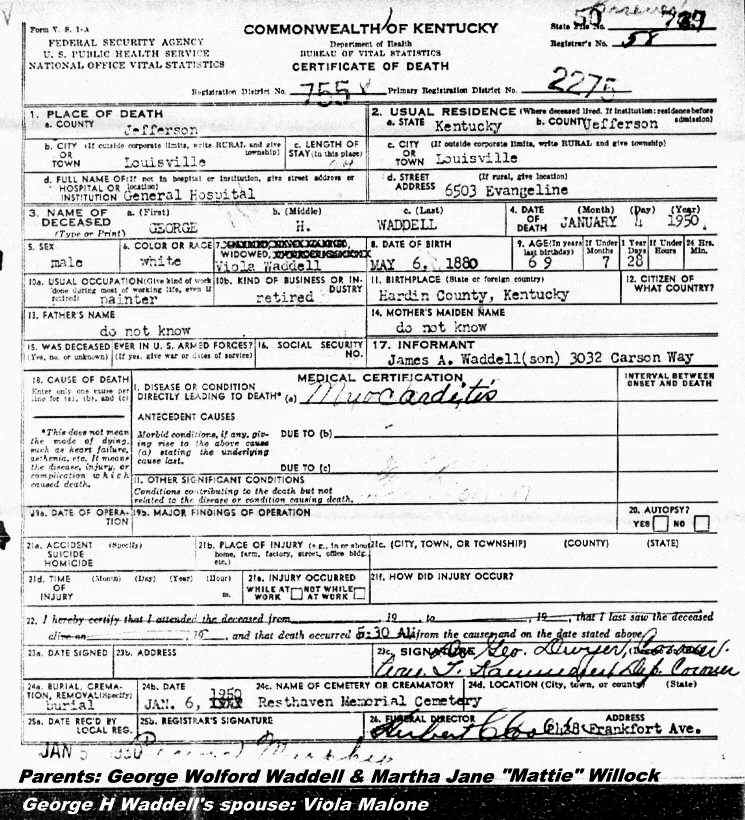 Form V. S. 1-A
FEDERAL SECURITY AGENCY
U. S. PUBLIC HEALTH SERVICE
NATIONAL OFFICE VITAL STATISTICS
COMMONWEALTH OF KENTUCKY
Department of Health
BUREAU OF VITAL STATISTICS
CERTIFICATE OF DEATH
State File No. 50
Registrar's No. 58
Registration District No. 755
Primary Registration District No. 2275
1. PLACE OF DEATH
a. COUNTY Jefferson
b. CITY (If outside corporate limits, write RURAL and give township)
OR TOWN Louisville
c. LENGTH OF STAY (in this place)
d. FULL NAME OF (If not in hospital or institution, give street address or location)
HOSPITAL OR INSTITUTION General Hospital
2. USUAL RESIDENCE (Where deceased lived. If institution: residence before admission)
a. STATE Kentucky b. COUNTY Jefferson
c. CITY (If outside corporate limits, write RURAL and give township)
OR TOWN Louisville
d. STREET ADDRESS (If rural, give location)
6503 Evangeline
3. NAME OF DECEASED (Type or Print)
a. (First) b. (Middle) c. (Last)
GEORGE H. WADDELL
4. DATE OF DEATH (Month) (Day) (Year)
JANUARY 4 1950
5. SEX
male
6. COLOR OR RACE
white
7. WIDOWED,
Viola Waddell
8. DATE OF BIRTH
MAY 6, 1880
9. AGE (In years last birthday) If Under 1 Year Months Days If Under 24 Hrs. Hours Min.
69 7 28
10a. USUAL OCCUPATION (Give kind of work done during most of working life, even if retired)
painter
10b. KIND OF BUSINESS OR INDUSTRY
retired
11. BIRTHPLACE (State or foreign country)
Hardin County, Kentucky
12. CITIZEN OF WHAT COUNTRY?
13. FATHER'S NAME
do not know
14. MOTHER'S MAIDEN NAME
do not know
15. WAS DECEASED EVER IN U. S. ARMED FORCES?
(Yes, no, or unknown) (If yes, give war or dates of service)
16. SOCIAL SECURITY NO.
17. INFORMANT
James A. Waddell(son) 3032 Carson Way
18. CAUSE OF DEATH
Enter only one cause per line for (a), (b), and (c)
*This does not mean the mode of dying, such as heart failure, asthenia, etc. It means the disease, injury, or complication which caused death.
MEDICAL CERTIFICATION
INTERVAL BETWEEN ONSET AND DEATH
I. DISEASE OR CONDITION DIRECTLY LEADING TO DEATH* (a) Myocarditis
ANTECEDENT CAUSES
Morbid conditions, if any, giving rise to the above cause (a) stating the underlying cause last.
DUE TO (b)
DUE TO (c)
II. OTHER SIGNIFICANT CONDITIONS
Conditions contributing to the death but not related to the disease or condition causing death.
19a. DATE OF OPERATION
19b. MAJOR FINDINGS OF OPERATION
20. AUTOPSY?
YES NO
21a. ACCIDENT SUICIDE HOMICIDE (Specify)
21b. PLACE OF INJURY (e.g., in or about home, farm, factory, street, office bldg. etc.)
21c. (CITY, TOWN, OR TOWNSHIP) (COUNTY) (STATE)
21d. TIME OF INJURY (Month) (Day) (Year) (Hour) m.
21e. INJURY OCCURRED
WHILE AT WORK NOT WHILE AT WORK
21f. HOW DID INJURY OCCUR?
22. I hereby certify that I attended the deceased from 19 , to , 19 , that I last saw the deceased
alive on 19 , and that death occurred 5:30 AM from the cause and on the date stated above
23a. DATE SIGNED
23b. ADDRESS
23c. SIGNATURE
Geo. Dwyer, Coroner
Dep. Coroner
24a. BURIAL, CREMATION, REMOVAL (Specify)
burial
24b. DATE
JAN. 6, 1950
24c. NAME OF CEMETERY OR CREAMATORY
Resthaven Memorial Cemetery
24d. LOCATION (City, town, or county) (State)
25a. DATE REC'D BY LOCAL REG.
25b. REGISTRAR'S SIGNATURE
26. FUNERAL DIRECTOR ADDRESS
Herbert Frankfort Ave.
JAN 5
Parents: George Wolford Waddell & Martha Jane "Mattie" Willock
George H Waddell's spouse: Viola Malone